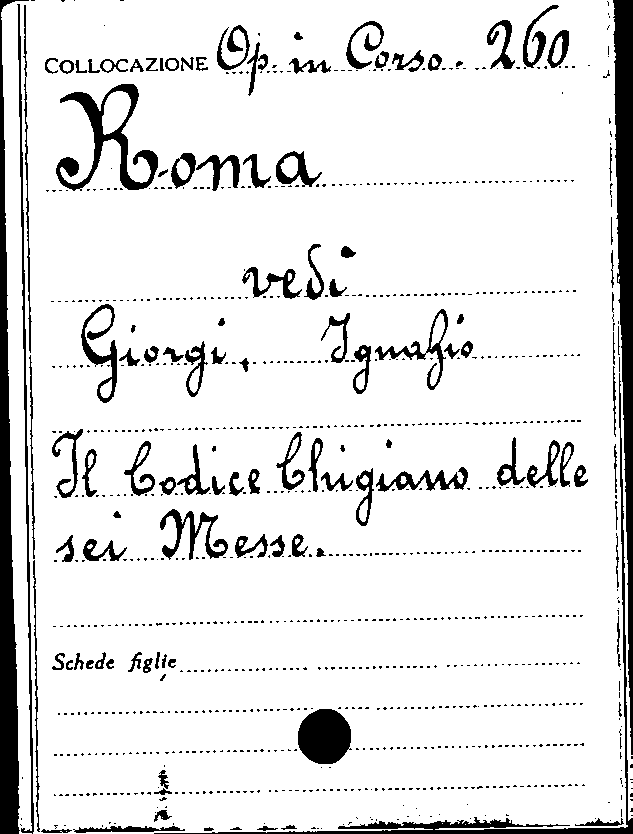 COLLOCAZIONE Op. in Corso. 260
Roma
vedi
Giorgi, Ignazio
Il Codice Chigiano delle
sei Messe.
Schede figlie